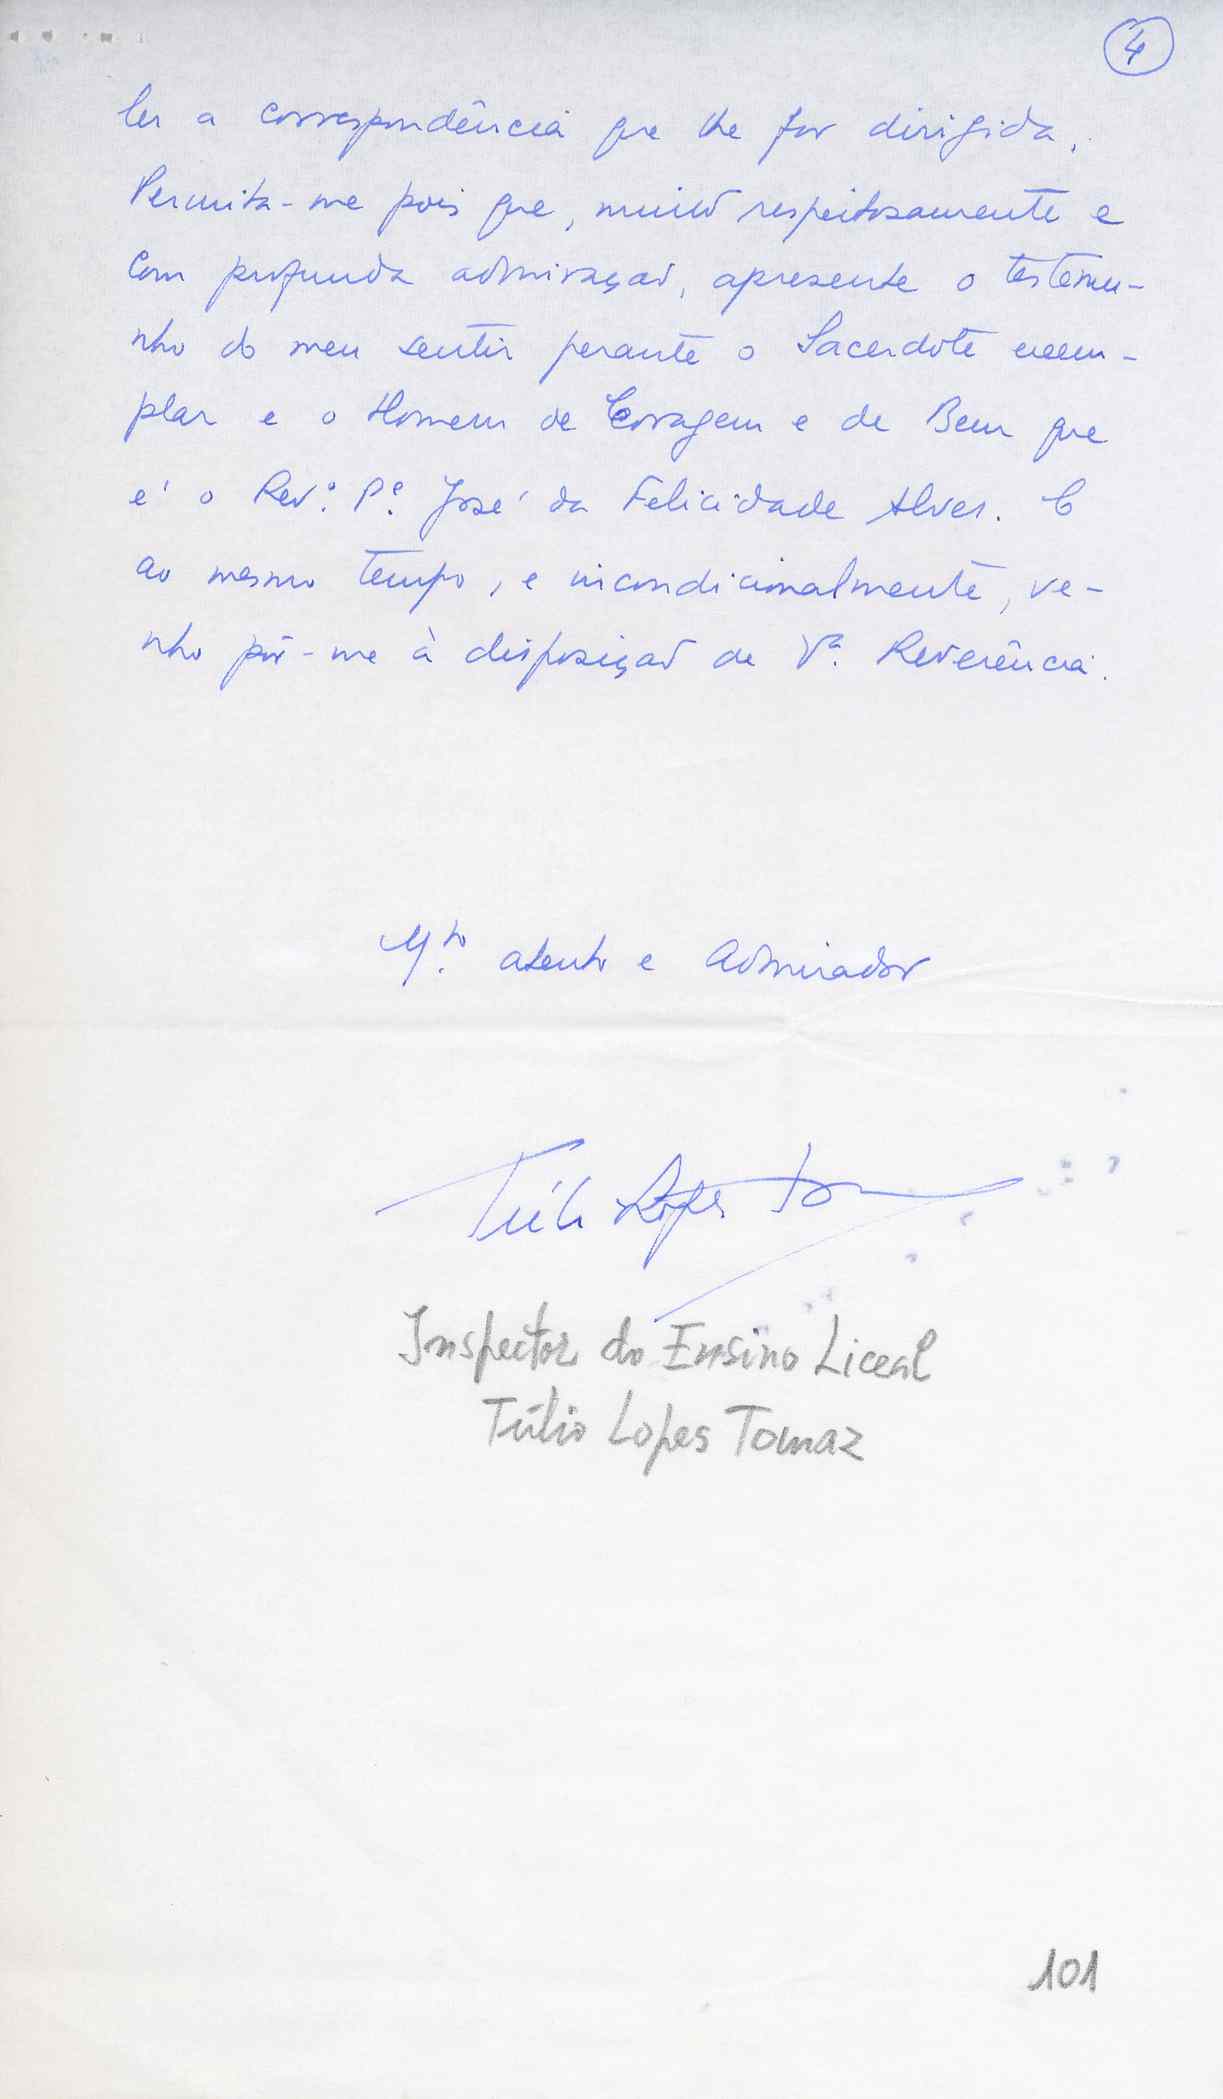 4
ler a correspondência que lhe for dirigida.
Permita-me pois que, muito respeitosamente e
com profunda admiração, apresente o testemu-
nho do meu sentir perante o Sacerdote exem-
plar e o Homem de Coragem e de Bem que
é o Revº. Pe. José da Felicidade Alves. E
ao mesmo tempo, e incondicionalmente, ve-
nho pôr-me à disposição de Vª. Reverência.
Mto. atento e Admirador
Túlio Lopes Tomaz
Inspector do Ensino Liceal
Túlio Lopes Tomaz
101